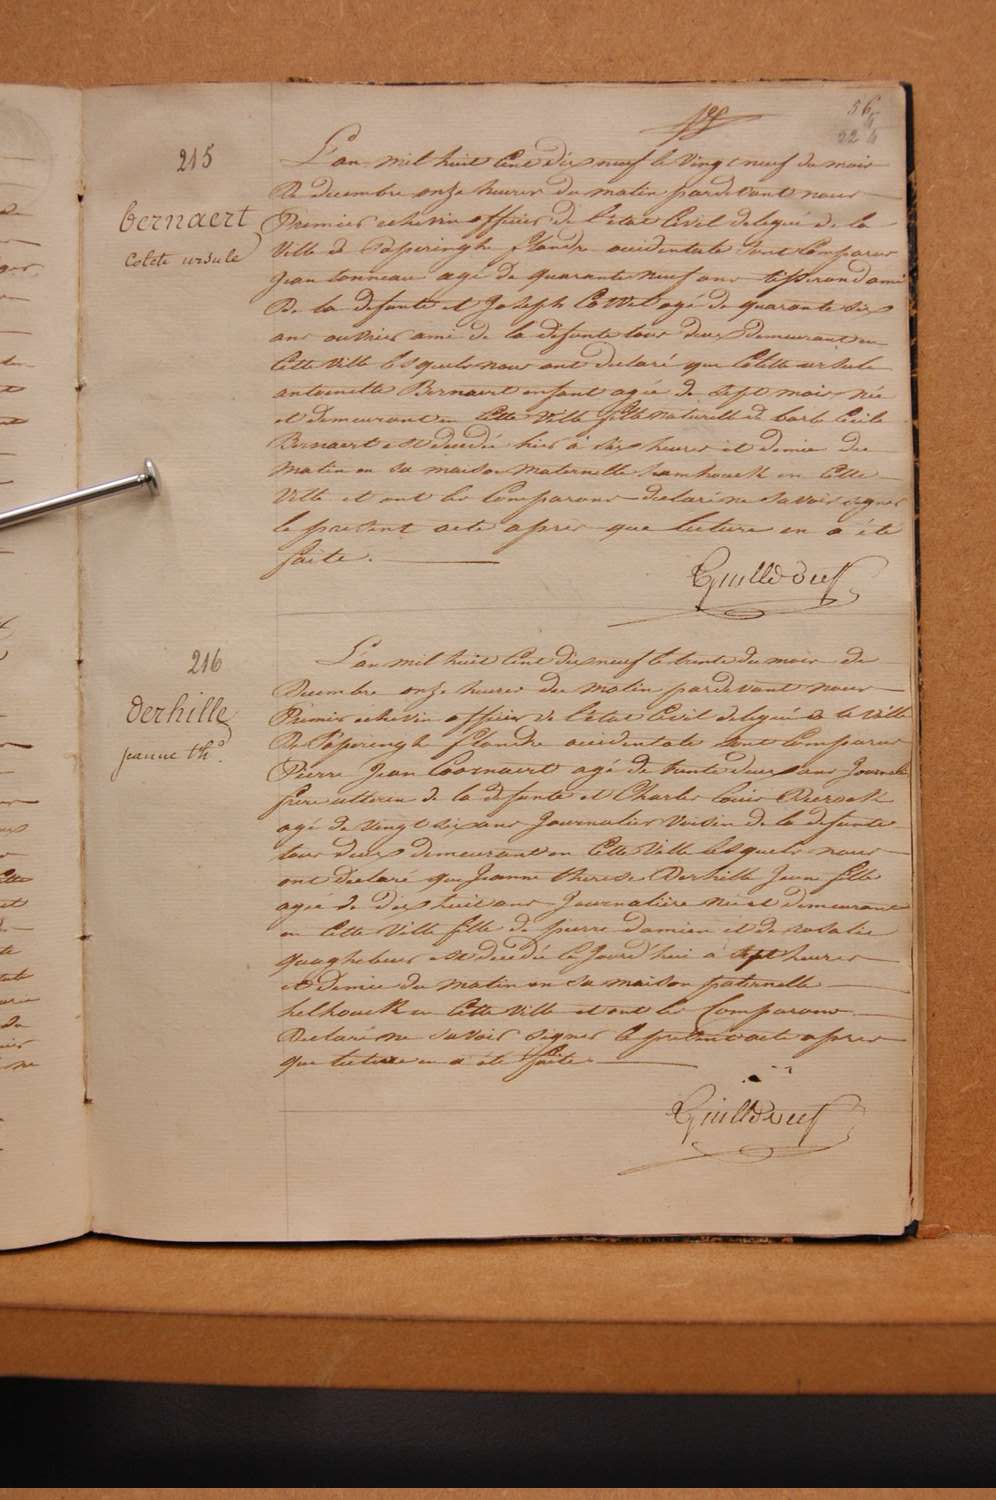 56
22 4
215
bernaert
Colete ursule
L'an mil huit Cent dix neuf le vingt neuf du mois
De decembre onze heures du matin pardevant nous
Premier echevin officier de l'etat Civil delegué de la
Ville de Poperinghe flandre occidentale sont Comparus
Jean tonneau agé de quarante neuf ans tisserand ami
De la defunte et Joseph agé de quarante six
ans ouvrier ami de la defunte tous deux demeurant en
Cette Ville lesquels nous ont declaré que Colette ursule
antoinette Bernaert enfant agée de sept mois née
et demeurant en Cette Ville fille naturelle de barbe Cecile
Bernaert est decedée hier à six heures et demie du
Matin en sa maison Maternelle en Cette
Ville et ont les Comparans declaré ne savoir signer
le present acte apres que lecture en a été
faite.
216
Derhille
jeanne th.
L'an mil huit Cent dix neuf le trente du mois de
Decembre onze heures du Matin pardevant nous
Premier echevin officier de l'etat Civil delegué de la Ville
De Poperingh flandre occidentale sont Comparus
Pierre Jean Coornaert agé de trente deux ans Journali
frere utterin de la defunte et Charles Louis
agé de vingt six ans Journalier Voisin de la defunte
tous deux demeurant en Cette Ville lesquels nous
ont declaré que Jeanne therese Derhille Jeune fille
agée de dix huit ans Journaliere née et demeurant
en Cette Ville fille de pierre damien et de rosalie
quaghebeur est decedée le Jourd'hui à sept heures
et Demie du Matin en sa maison paternelle
helhouck en Cette Ville et ont les Comparans
Declaré ne savoir signer le present acte apres
que lecture en a été faite.